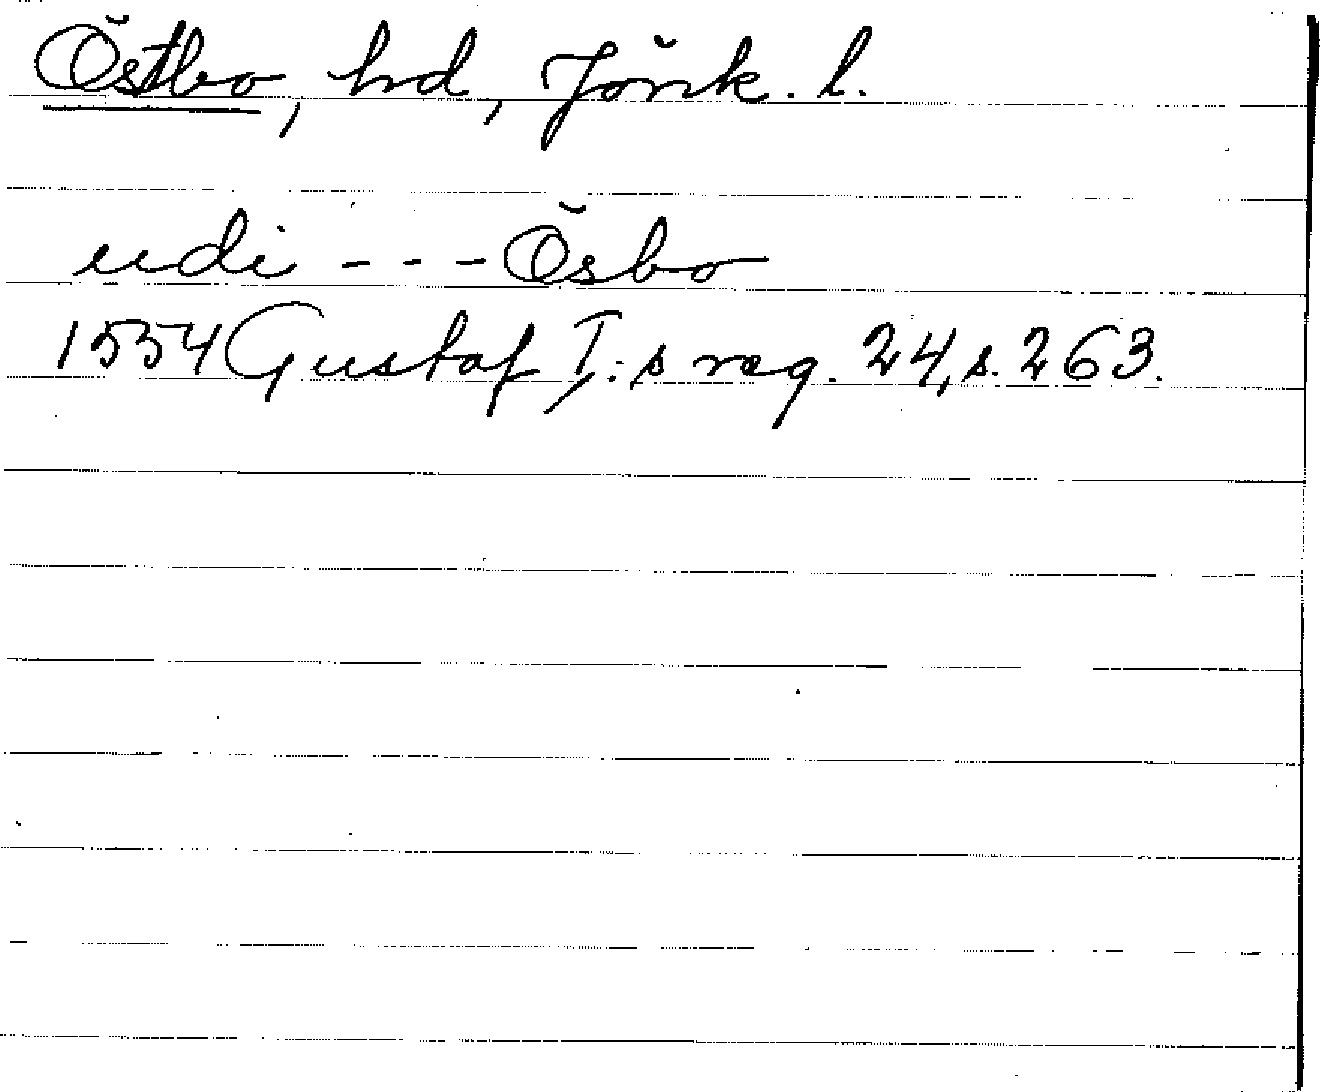 Östbo, hd, Jönk. l.
udi - - - Ösbo
1554 Gustaf I:s reg. 24, s. 263.